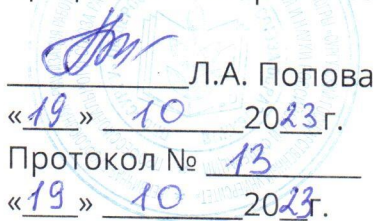 Л.А. Попова
«19» 10 2023г.
Протокол № 13
«19» 10 2023г.